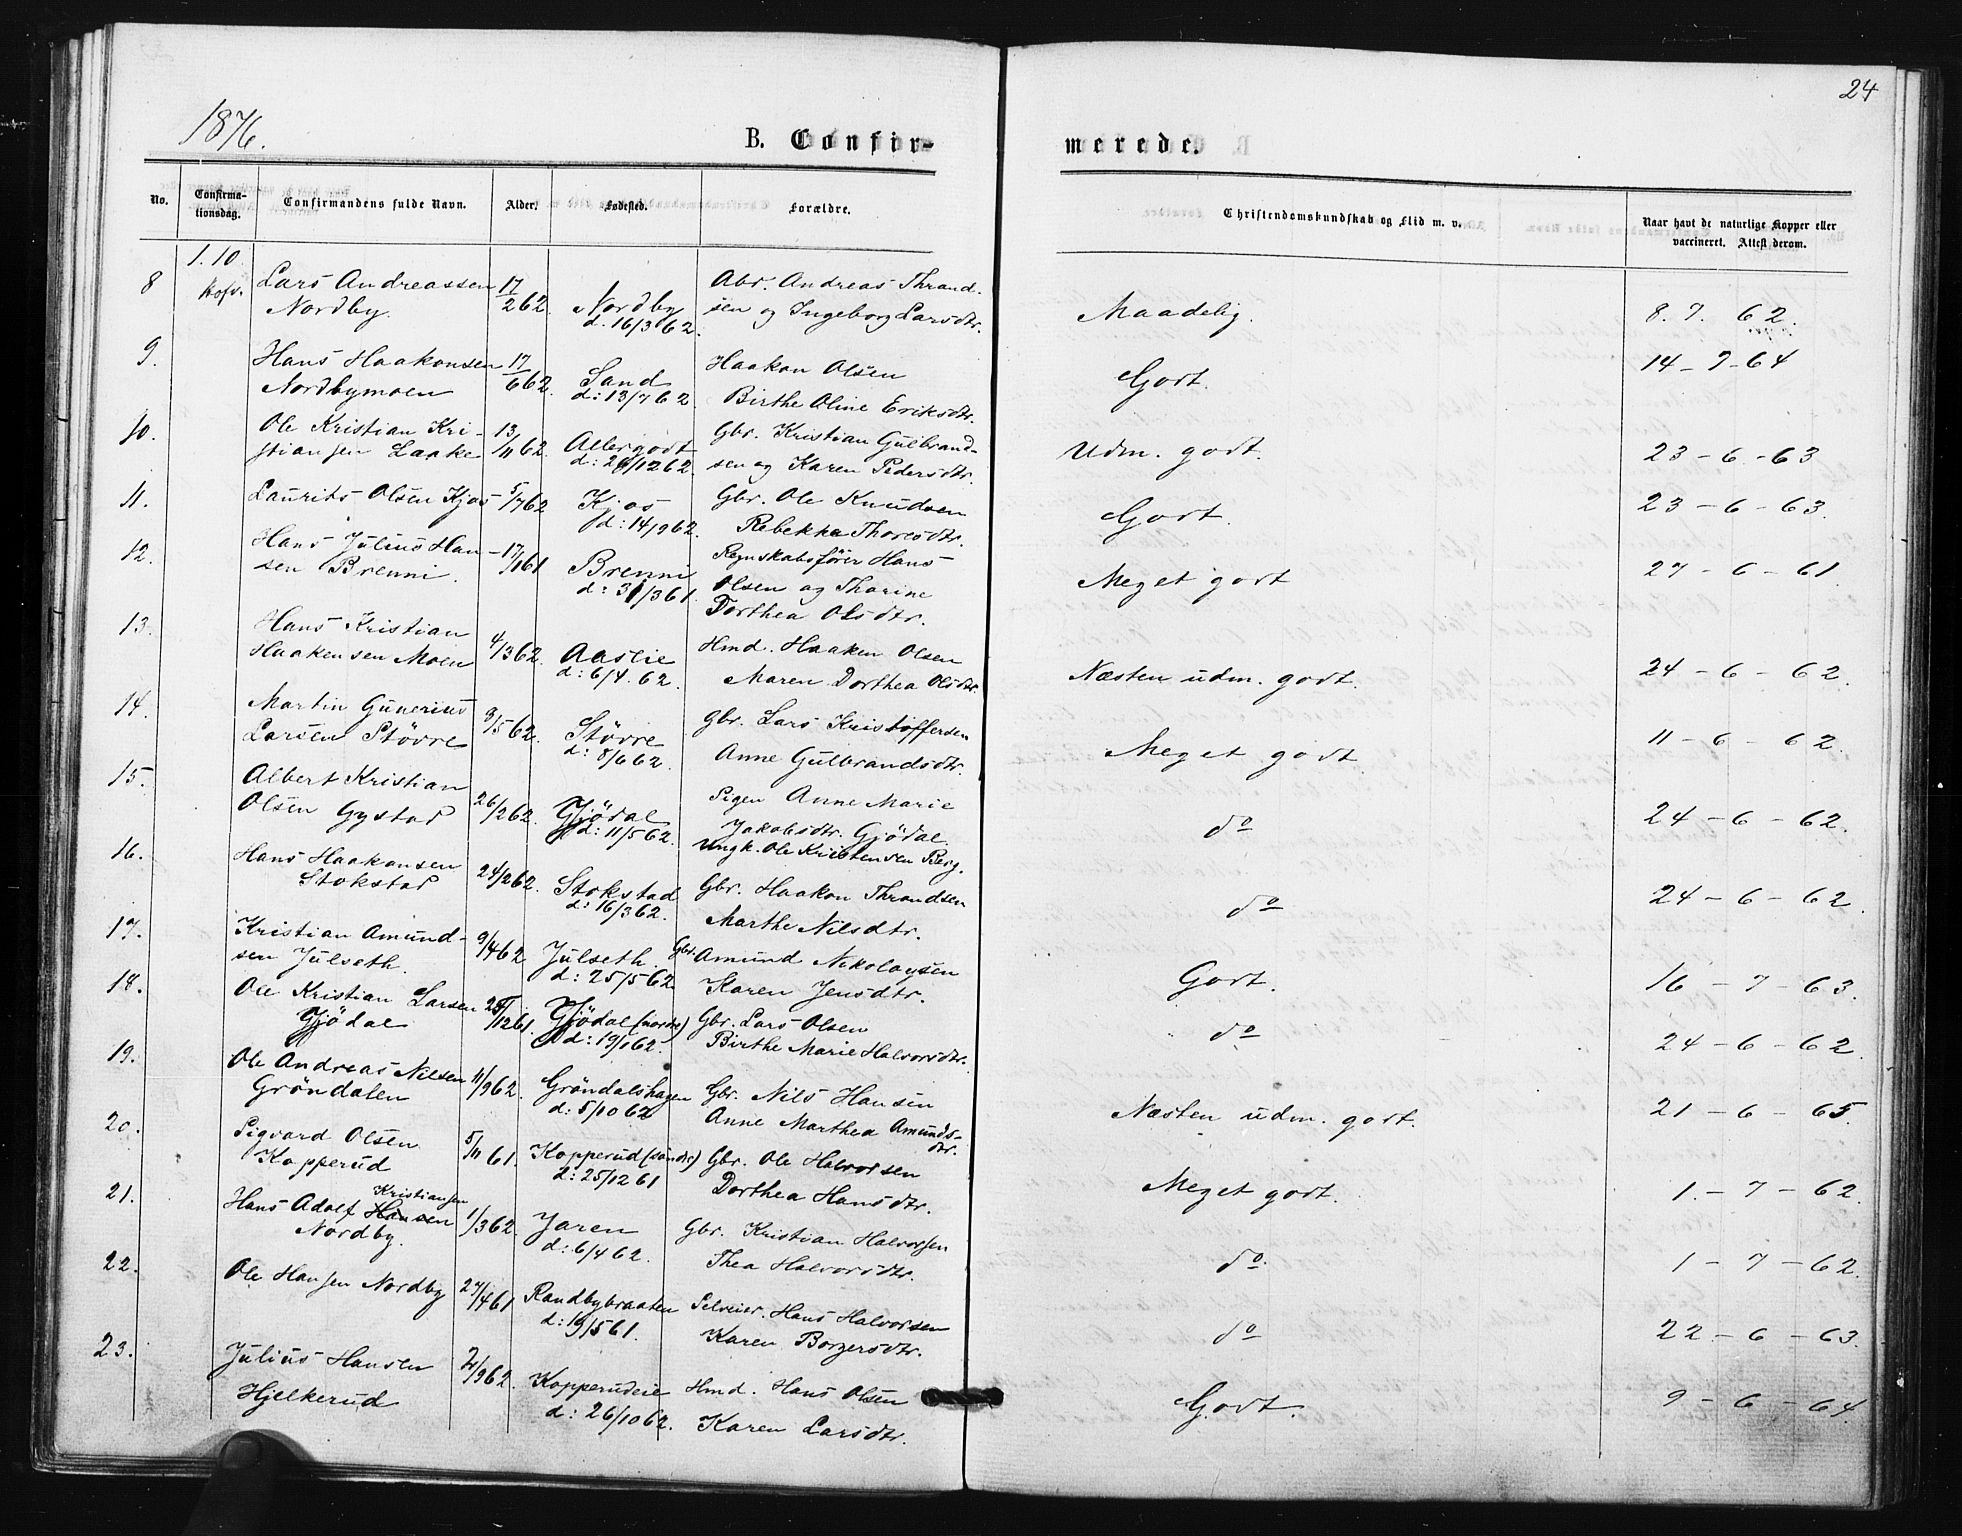 24
1876.
B. Confirmerede.
No. Confirmationsdag. Confirmandens fulde Navn. Alder. Fødested. Forældre. Christendomskundskab og Flid m. v. Naar havt de naturlige Kopper eller vaccineret. Attest derom.
1.10
8 Lars Andreassen 17/2 62 Nordby Abr. Andreas Thrand- Maadelig. 8. 7. 62.
Nordby. d. 16/3 62. sen og Ingeborg Larsdtr.
9. Hans Haakonsen 17/6 62. Sand Haakon Olsen Godt. 14-7-64
Nordbymoen d: 13/7 62 Birthe Oline Eriksdtr.
10. Ole Kristian Kri- 13/11 62. Allergodt Gbr. Kristian Gulbrand- Udm. godt. 23-6-63
stiansen Laake d: 26/12 62. sen og Karen Pedersdtr.
11. Laurits Olsen Kjos 5/7 62 Kjos Gbr. Ole Knudsen Godt. 23-6-63.
d: 14/9 62. Rebekka Thoresdtr.
12. Hans Julius Han- 17/1 61 Brenni Regnskabsfører Hans Meget godt 27-6-61.
sen Brenni. d: 31/3 61. Olsen og Thorine
Dorthea Olsdtr.
13. Hans Kristian 4/3 62. Aaslie Hmd. Haaken Olsen Næsten udm. godt. 24-6-62.
Haakensen Moen d: 6/4. 62. Maren Dorthea Olsdtr.
14. Martin Gunerius 8/5 62. Støvre Gbr. Lars Kristoffersen Meget godt. 11-6-62.
Larsen Støvre d: 8/6 62. Anne Gulbrandsdtr.
15. Albert Kristian 26/2 62. Gjödal Pigen Anne Marie do 24-6-62.
Olsen Gystad d: 11/5 62. Jakobsdtr. Gjödal.
Ungk. Ole Kristensen Berg.
16. Hans Haakonsen 24/2 62. Stokstad Gbr. Haakon Throndsen do 24-6-62.
Stokstad d: 16/3 62. Marthe Nilsdtr.
17. Kristian Amund- 9/4 62 Julseth. Gbr. Amund Nikolaysen Godt. 16-7-63.
sen Julseth. d: 25/5 62. Karen Jensdtr.
18. Ole Kristian Larsen 25/12 61. Gjödal (nordr) Gbr. Lars Olsen do 24-6-62.
Gjödal d: 19/1 62. Birthe Marie Halvorsdtr.
19. Ole Andreas Nilsen 11/9 62. Gröndalshagen Gbr. Nils Hansen Næsten udm. godt. 21-6-65
Gröndalen d: 5/10 62 Anne Marthea Amunds-
dtr.
20. Sigvard Olsen 5/11 61. Kopperud (søndr) Gbr. Ole Halvorsen Meget godt. 1.-7-62.
Kopperud d: 25/12 61 Dorthea Hansdtr.
Kristiansen
21. Hans Adolf Hansen 1/3 62. Jaren Gbr. Kristian Halvorsen do 1-7-62.
Nordby. d: 6/4 62. Thea Halvorsdtr.
22. Ole Hansen Nordby 27/4 61 Randbybraaten Selveier. Hans Halvorsen do 22-6-63.
d: 19/5 61. Karen Borgersdtr.
23. Julius Hansen 21/9 62. Kopperudeie Hmd. Hans Olsen Godt. 9-6-64.
Hjelkerud d: 26/10 62. Karen Larsdtr.